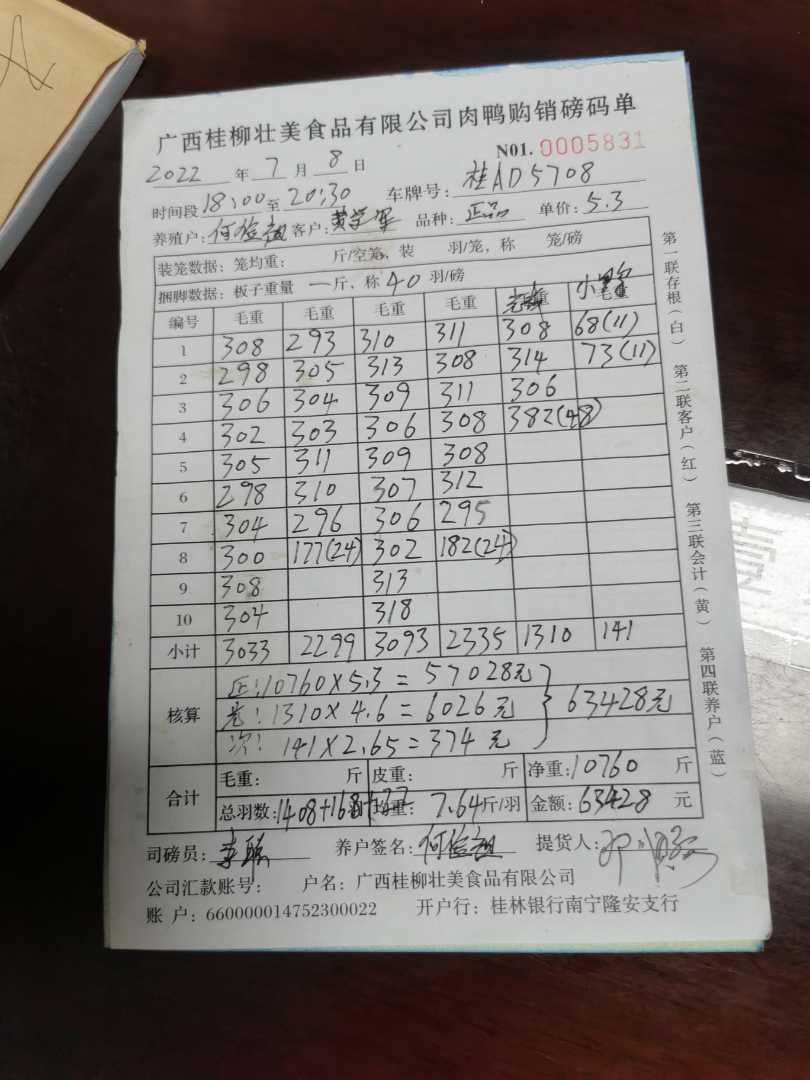 广西桂柳壮美食品有限公司肉鸭购销磅码单
N01. 0005831
2022 年 7 月 8 日
时间段 18:00 至 20:30 车牌号: 桂AD5708
养殖户: 客户: 品种: 正品 单价: 5.3
装笼数据: 笼均重: 斤/空笼, 装 羽/笼, 称 笼/磅
捆脚数据: 板子重量 一 斤, 称 40 羽/磅
编号 毛重 毛重 毛重 毛重 重 毛重
1 308 293 310 311 308 68(11)
2 298 305 313 308 314 73(11)
3 306 304 309 311 306
4 302 303 306 308 382(48)
5 305 311 309 308
6 298 310 307 312
7 304 296 306 295
8 300 177(24) 302 182(24)
9 308 313
10 304 318
小计 3033 2299 3093 2335 1310 141
核算
正:10760×5.3=57028元
:1310×4.6=6026元
次:141×2.65=374元
63428元
合计
毛重: 斤 皮重: 斤 净重: 10760 斤
总羽数: 1408+168+22 均重: 7.64 斤/羽 金额: 63428 元
司磅员: 养户签名: 提货人:
公司汇款账号: 户名: 广西桂柳壮美食品有限公司
账 户: 660000014752300022 开户行: 桂林银行南宁隆安支行
第一联存根(白) 第二联客户(红) 第三联会计(黄) 第四联养户(蓝)